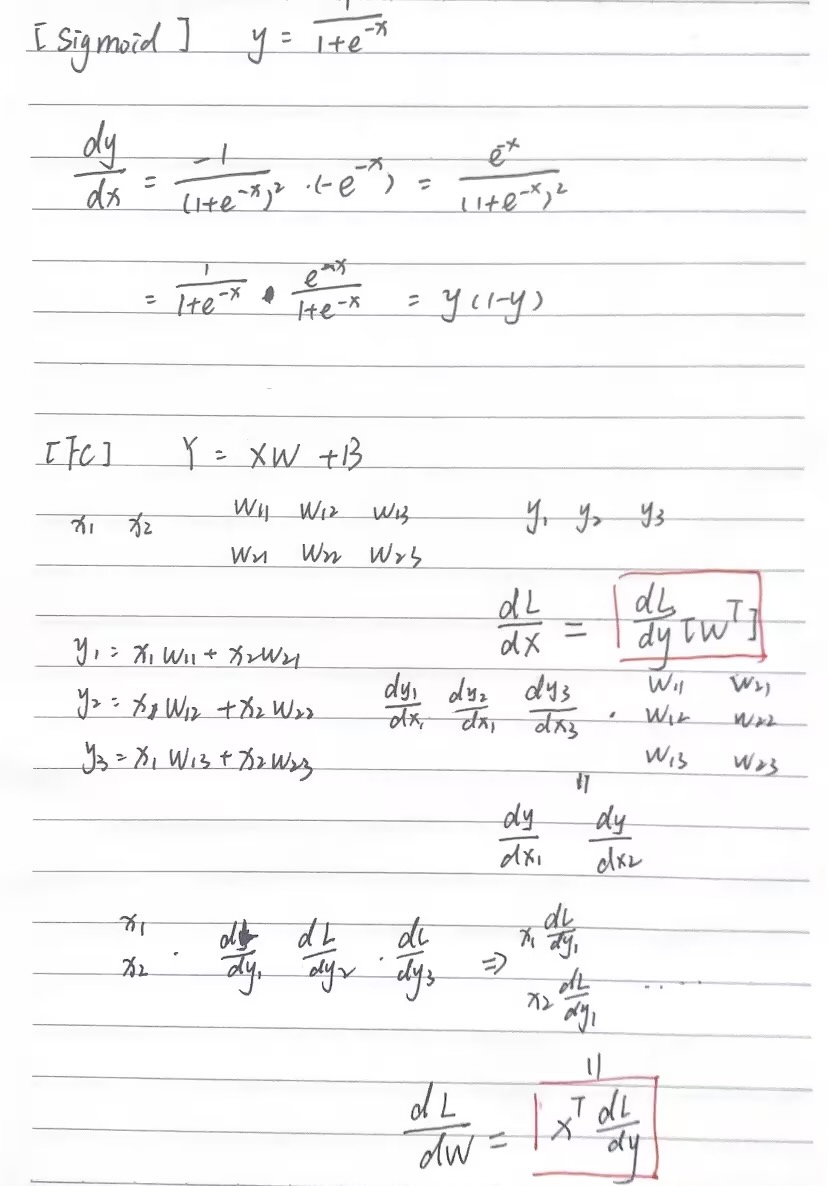 [Sigmoid] y = 1/(1+e^-x)
dy/dx = -1/(1+e^-x)^2 · (-e^-x) = e^-x/(1+e^-x)^2
= 1/(1+e^-x) · e^-x/(1+e^-x) = y(1-y)
[FC] Y = XW + B
x1 x2 W11 W12 W13 y1 y2 y3
W21 W22 W23
dL/dX = dL/dy [W^T]
y1 = x1 W11 + x2 W21
y2 = x1 W12 + x2 W22 dy1/dx1 dy2/dx1 dy3/dx3 · W11 W21
W12 W22
y3 = x1 W13 + x2 W23 W13 W23
=
dy/dx1 dy/dx2
x1 dL/dy1 dL/dy2 · dL/dy3 ⇒ x1 dL/dy1
x2 · x2 dL/dy1 .....
=
dL/dW = x^T dL/dy